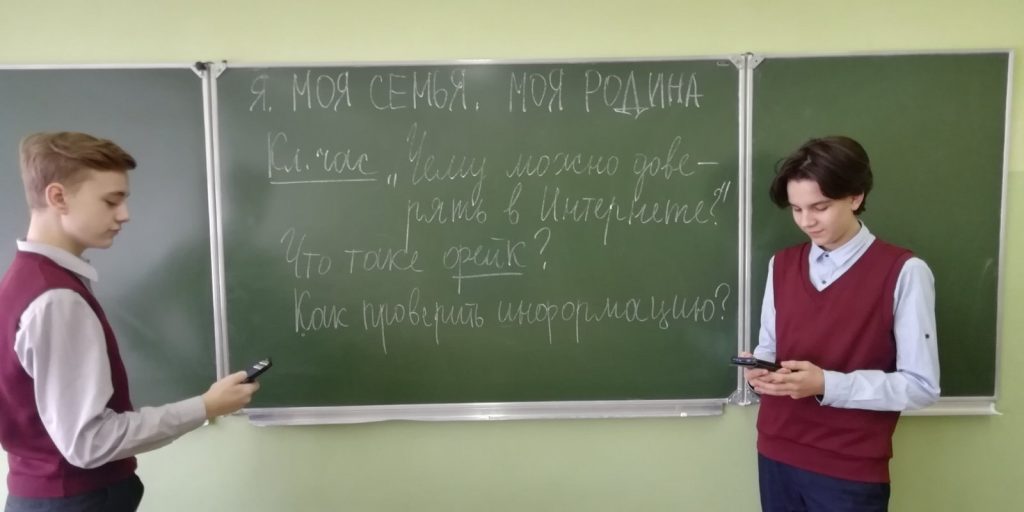 Я. МОЯ СЕМЬЯ. МОЯ РОДИНА
Кл. час „Чему можно дове-
рять в Интернете?"
Что таке фейк?
Как проверить информацию?